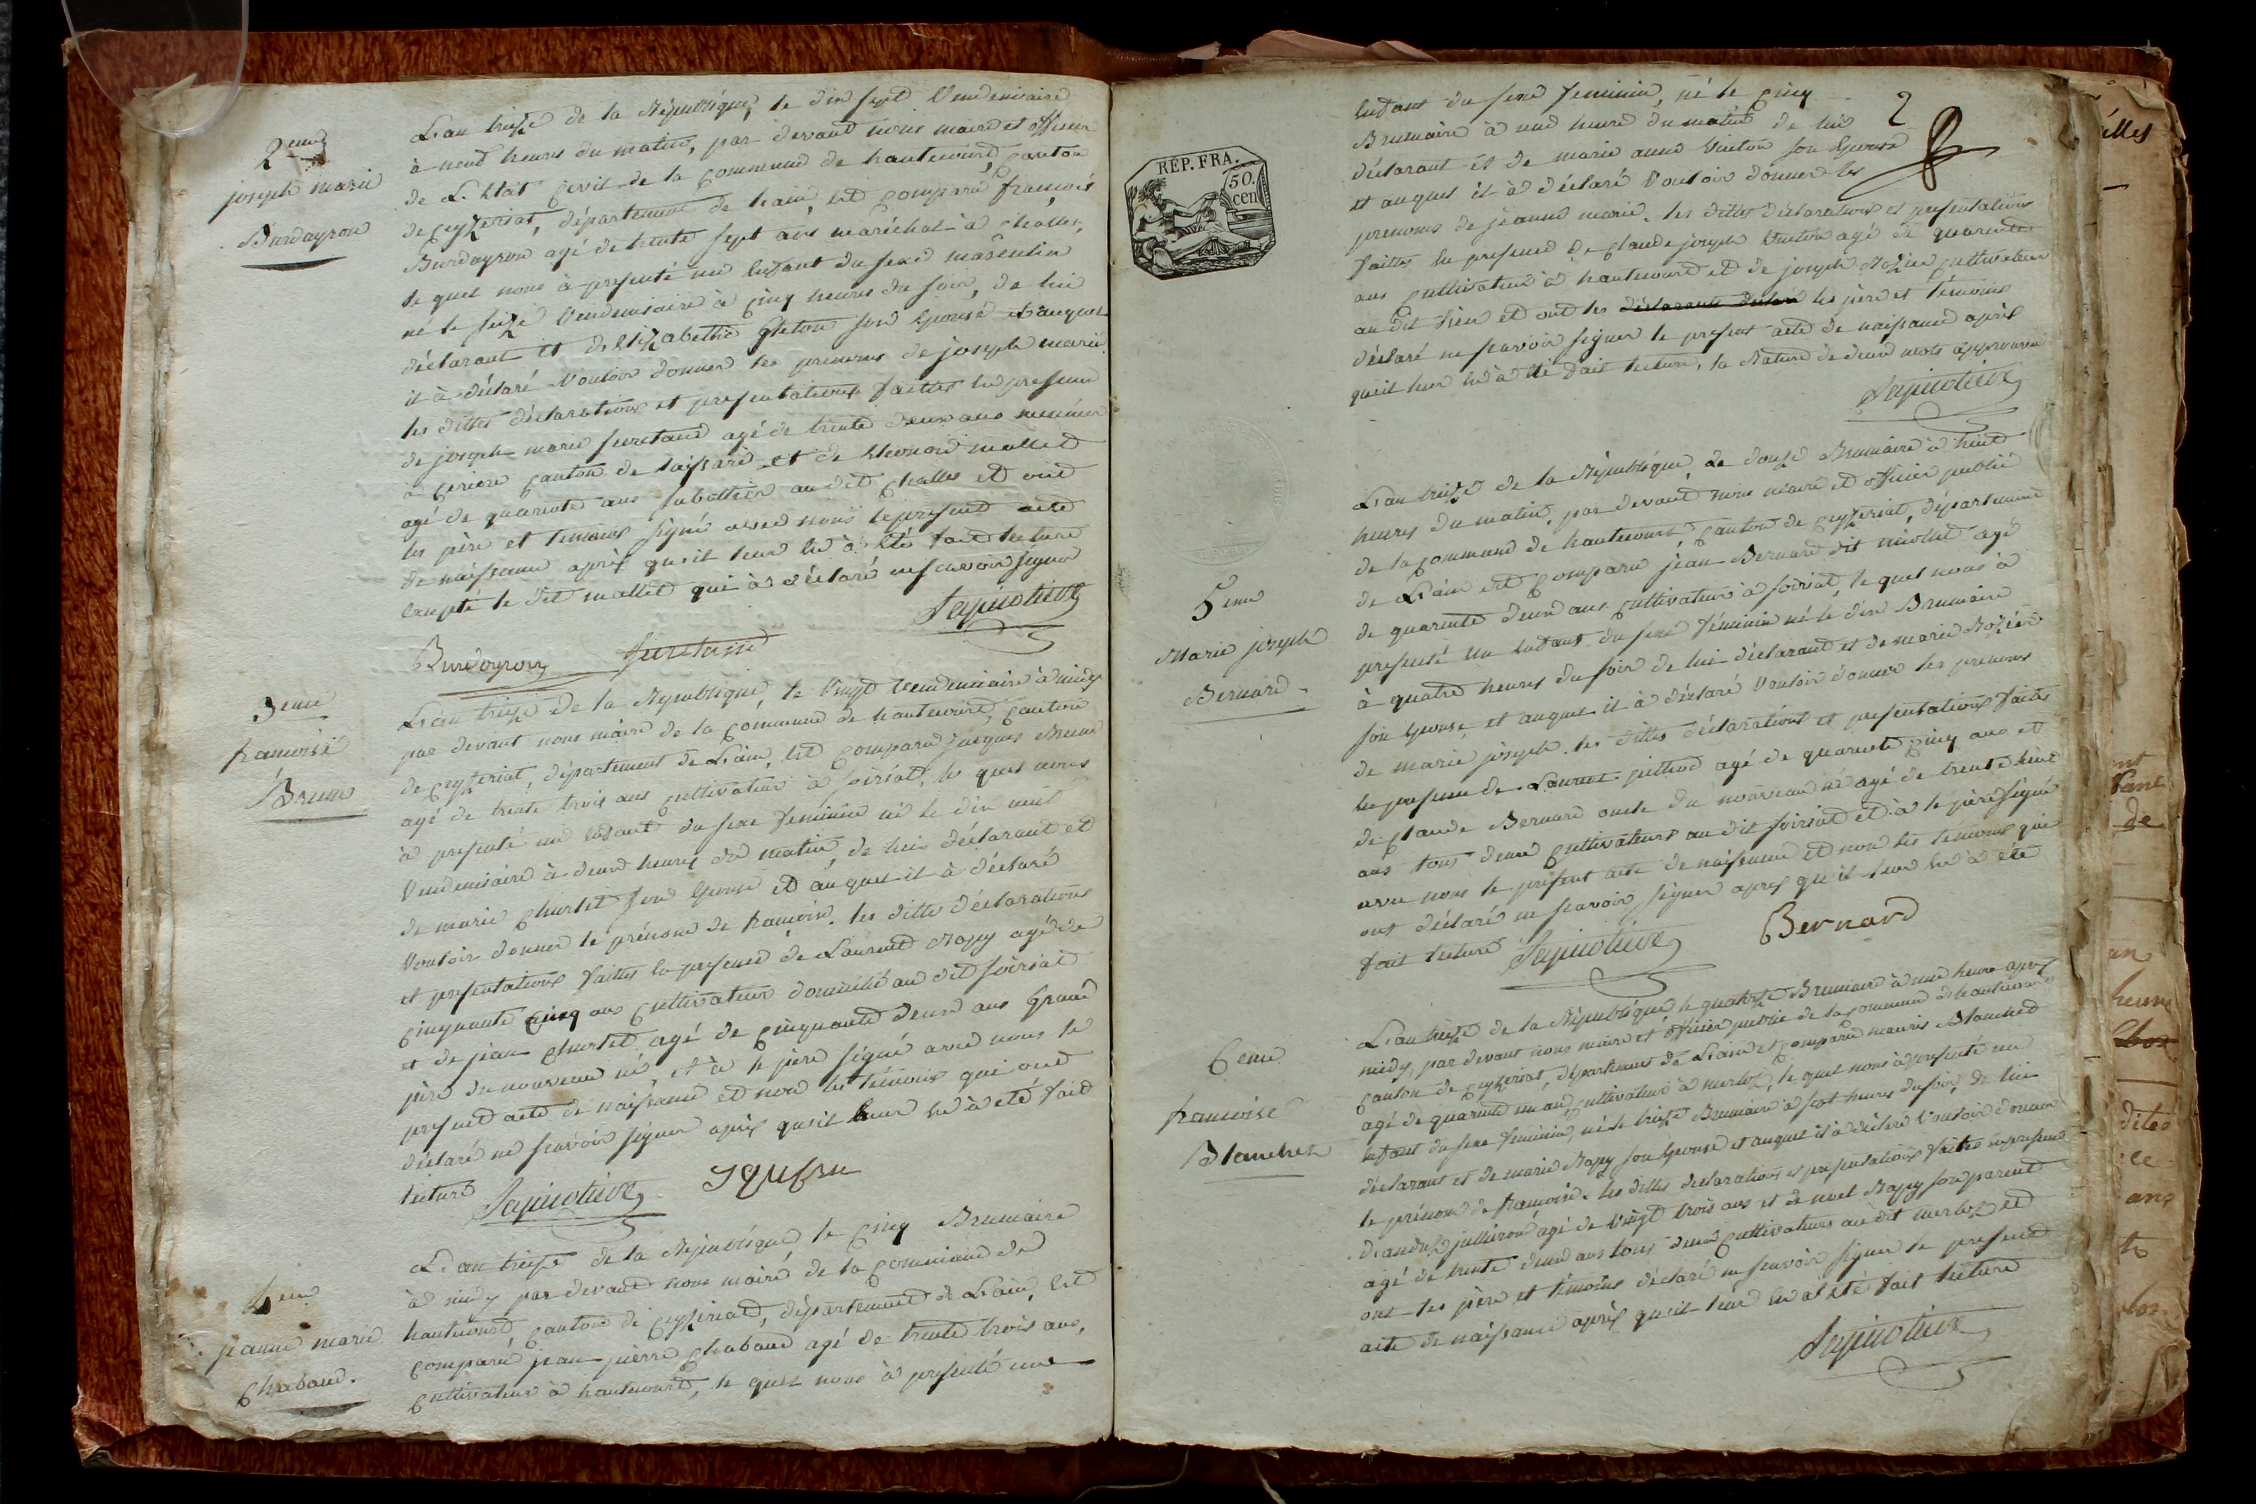 2eme
joseph marie
Burdayron
L'an treize de la République, le dix sept Vendemiaire
à neuf heures du matin, par devant nous maire et officier
de L'Etat Civil de la Commune de hautecourt, Canton
de Ceyzeriat, département de L'ain, est Comparu françois
Burdayron agé de trente sept ans maréchal à Challes,
le quel nous à presenté un Enfant du sexe masculin
né le seize Vendemiaire à Cinq heures du soir, de lui
déclarant et d'Elizabethe son Epouse et auquel
il à déclaré Vouloir donner les prenoms de joseph marie
les dittes déclarations et presentations faittes En presence
de joseph marie Suretand agé de trente deux ans meunier
à Canton de et de mallet
agé de quarente ans sabottier audit Challes et ont
les père et temoins signé avec nous le present acte
de naissance après qu'il leur En à Eté fait lecture
Excepté le dit mallet qui à déclaré ne scavoir signer
Burdayron
3eme
francoise
Brun
L'an treize de la République, le Vingt Vendemiaire à midy
par devant nous maire de la Commune de hautecourt, Canton
de Ceyzeriat, département de L'ain, Est Comparu jacques Brun
agé de trente trois ans Cultivateur à soiriat, le quel nous
à presenté un Enfant du sexe feminin né le dix neuf
Vendemiaire à deux heures du matin, de lui déclarant et
de marie Churlet son Epouse et auquel il à déclaré
Vouloir donner le prénom de francoise. les dittes déclarations
et presentations faittes En presence de Laurent Rapy agé de
Cinquante Cinq ans Cultivateur domicilié au dit soiriat
et de jean Churlet agé de Cinquante deux ans Grand
père du nouveau né et à le père signé avec nous le
present acte de naissance et non les témoins qui ont
déclaré ne scavoir signer après qu'il leur En à été fait
lecture
4eme
jeanne marie
Chabaud.
L'an treize de la République le Cinq Brumaire
à midy par devant nous maire de la Commune de
hautecourt, Canton de Ceyzeriat, département de L'ain, Est
Comparu jean pierre Chabaud agé de trente trois ans,
Cultivateur à hautecourt, le quel nous à presenté un
2
REP. FRA.
50.
cen.
Enfant du sexe feminin, né le Cinq
Brumaire à une heure du matin de lui
déclarant et de marie anne Vuiton son Epouse
et auquel il à déclaré Vouloir donner les
prenoms de jeanne marie. les dittes déclarations et presentations
faittes En presence de Claude joseph Vuiton agé de quarente
ans Cultivateur à hautecourt et de joseph Rozier Cultivateur
au dit lieu et ont les les père et témoins
déclaré ne scavoir signer le present acte de naissance après
qu'il leur En à Eté fait lecture, la Rature de deux mots approuvée
5eme
Marie joseph
Bernard
L'an treize de la République, Le douze Brumaire à huit
heures du matin, par devant nous maire et officier public
de la Commune de hautecourt, Canton de Ceyzeriat, département
de L'ain est Comparu jean Bernard dit agé
de quarente deux ans Cultivateur à soiriat, le quel nous à
presenté Un Enfant du sexe féminin né le dix Brumaire
à quatre heures du soir de lui déclarant et de marie Rozier
son Epouse, et auquel il à déclaré Vouloir donner les prenoms
de marie joseph. les dittes déclarations et presentations faites
En presence de Laurent juthod agé de quarente Cinq ans et
de Claude Bernard oncle du nouveau né agé de trente huit
ans tous deux Cultivateurs au dit soiriat et à le père signé
avec nous le présent acte de naissance et non les témoins qui
ont déclaré ne scavoir signer après qu'il leur En à été
fait lecture
Bernard
6eme
francoise
Blanchet
L'an treize de la République, le quatorze Brumaire à une heure après
midy, par devant nous maire et officier public de la Commune de hautecourt
Canton de Ceyzeriat, département de L'ain est Comparu mauris Blanchet
agé de quarente un ans, Cultivateur à merloz, le quel nous à presenté un
Enfant du sexe feminin, né le treize Brumaire à sept heures du soir, de lui
déclarant et de marie Rapy son Epouse et auquel il à déclaré Vouloir donner
le prénom de francoise. les dittes declarations et presentations faites En presence
d'andré jullieron agé de Vingt trois ans et de noel Rapy son parent
agé de trente deux ans tous deux Cultivateurs au dit merloz et
ont les père et témoins déclaré ne scavoir signer le present
acte de naissance après qu'il leur En à Eté fait lecture